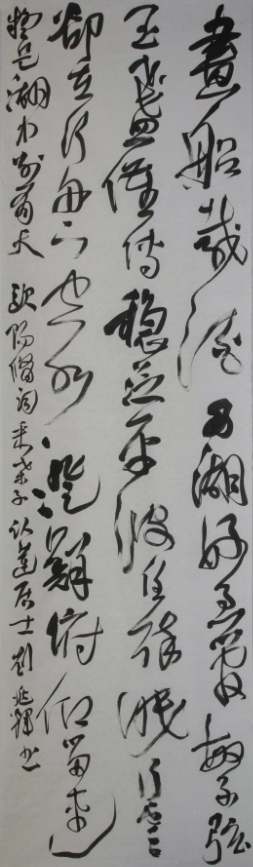 畫船載酒西湖好急管繁弦
玉盞催傳穩泛平波任醉眠行雲
卻在行舟下空水澄鮮俯仰留連
疑是湖中別有天 歐陽脩詞采桑子 蓮居士劉兆書